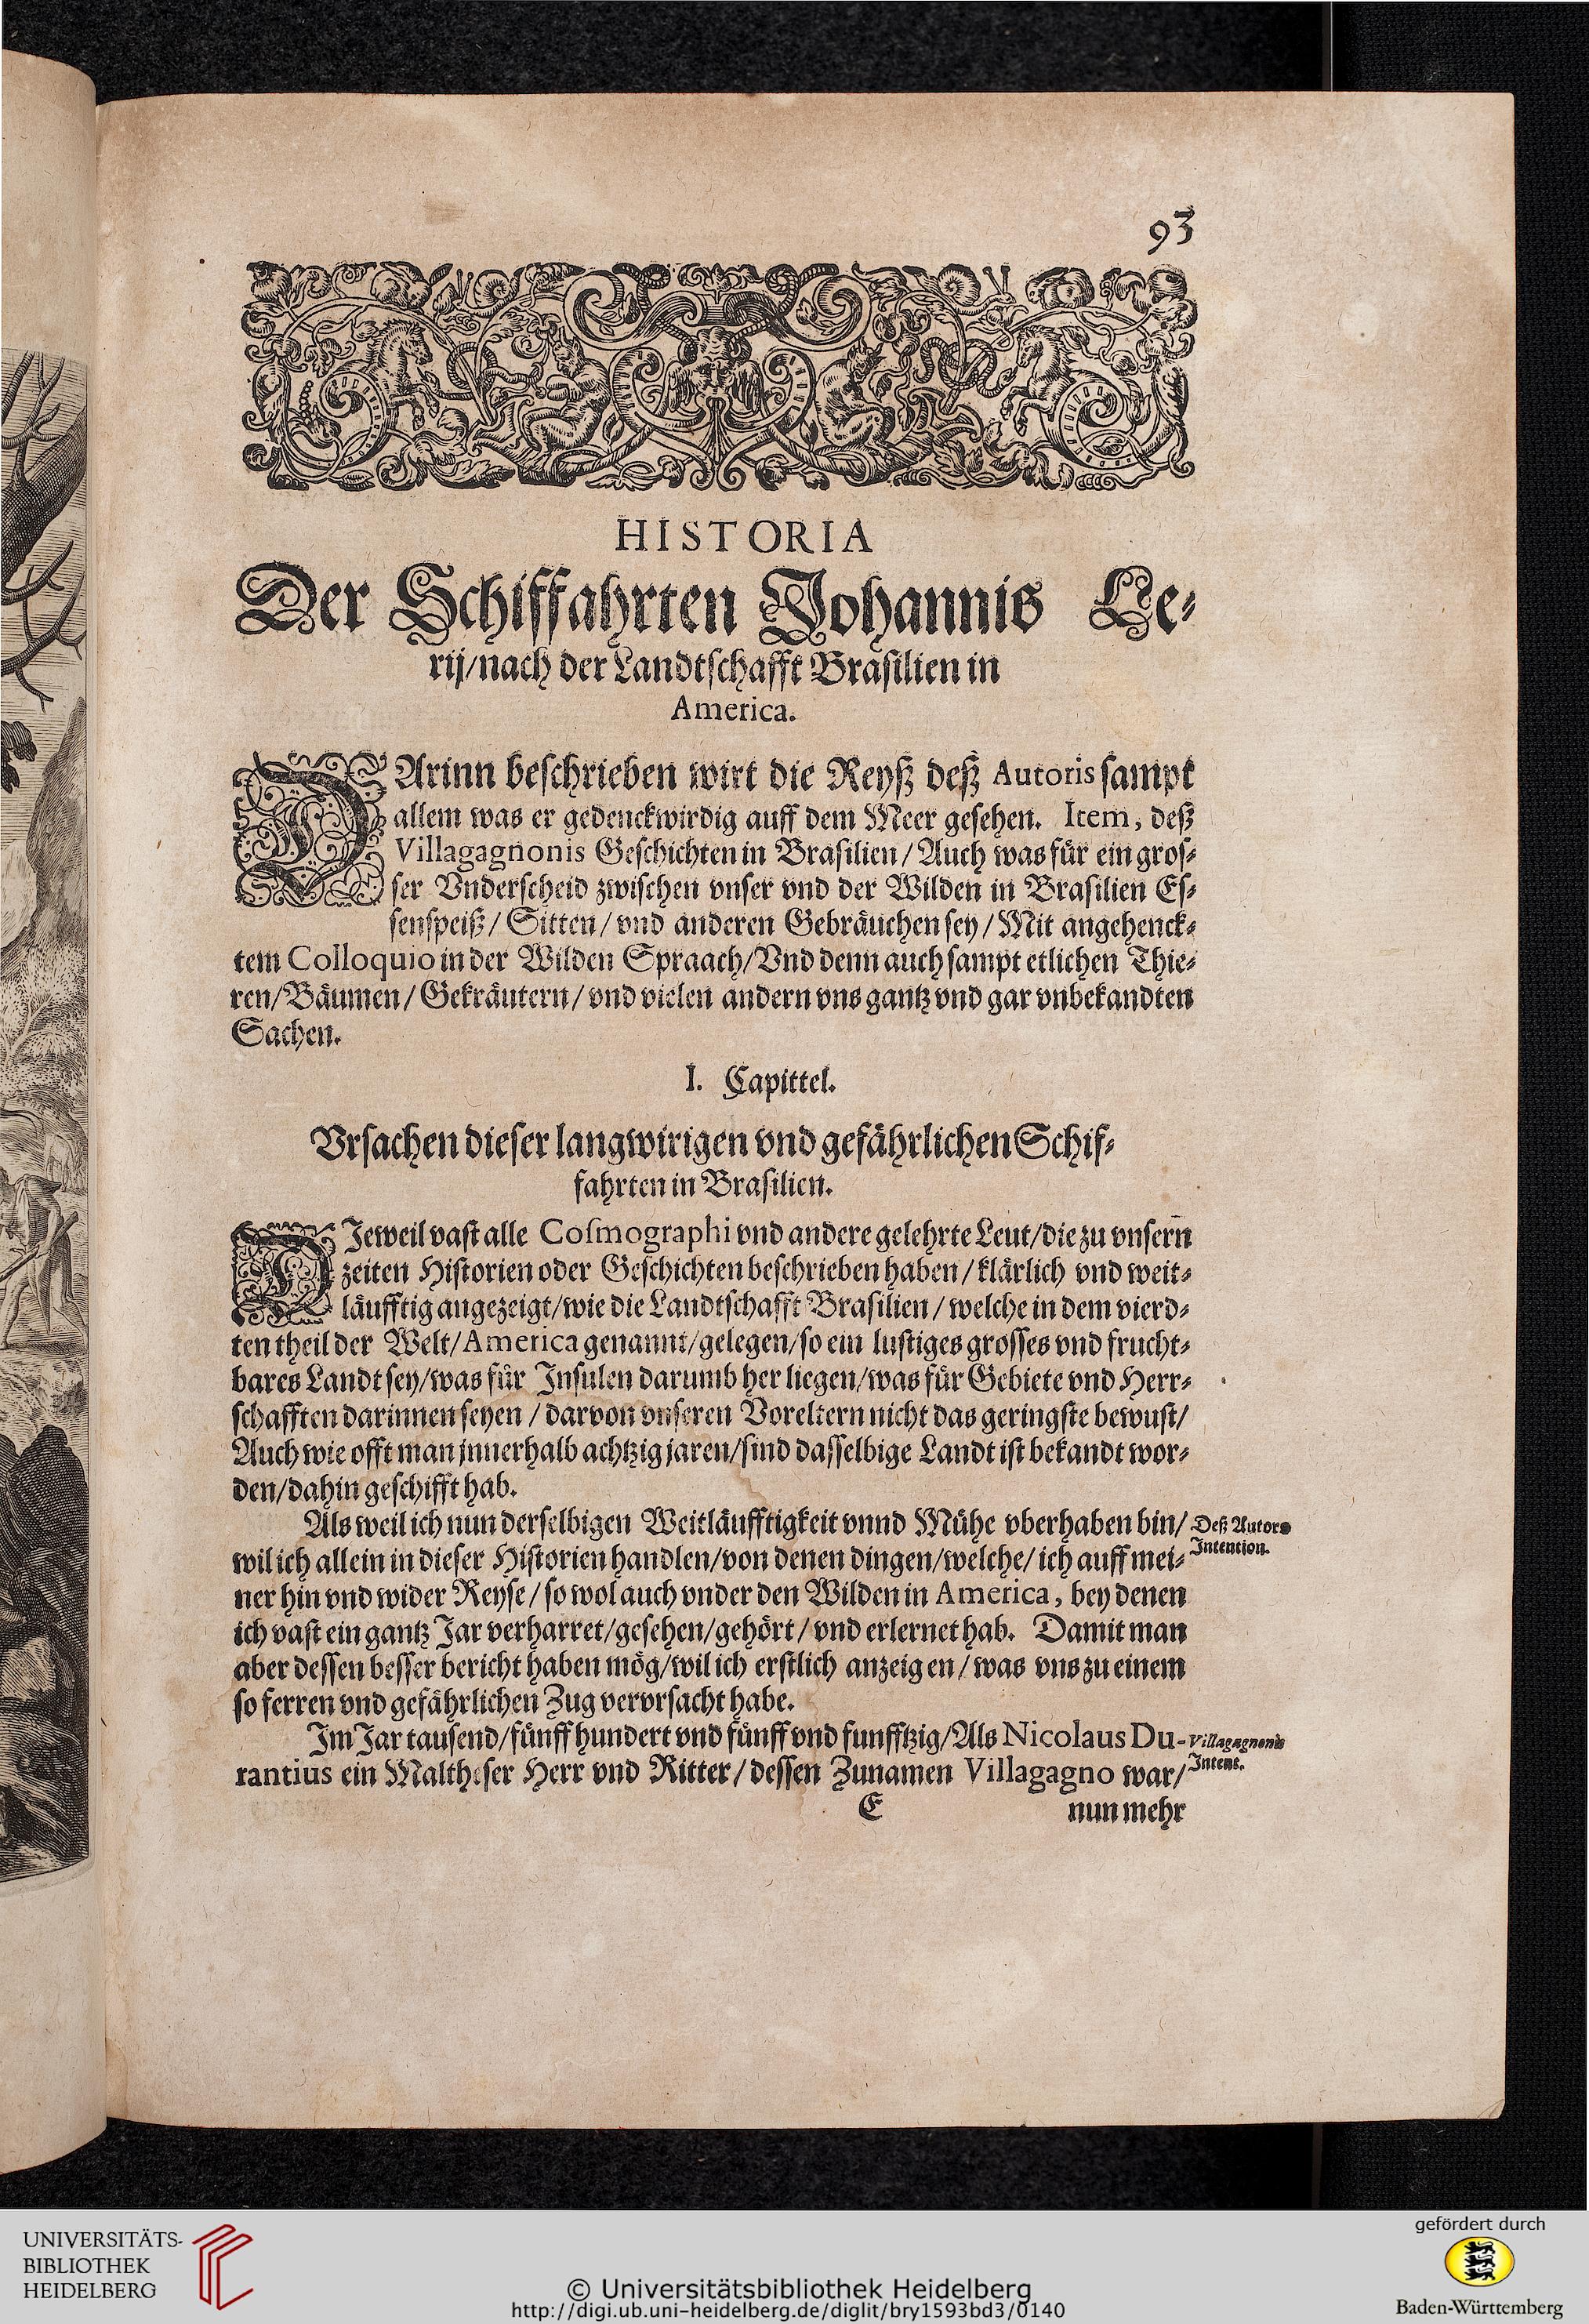 93
HISTORIA
Der Schiffahrten Johannis Le-
rij/nach der Landtschafft Brasilien in
America.
DArinn beschrieben wirt die Reyß deß Autoris sampt
allem was er gedenckwirdig auff dem Meer gesehen. Item, deß
Villagagnonis Geschichten in Brasilien / Auch was für ein gros-
ser Vnderscheid zwischen vnser vnd der Wilden in Brasilien Es-
senspeiß / Sitten / vnd anderen Gebräuchen sey / Mit angehenck-
tem Colloquio in der Wilden Spraach/Vnd denn auch sampt etlichen Thie-
ren/Bäumen / Gekräutern / vnd vielen andern vns gantz vnd gar vnbekandten
Sachen.
I. Capittel.
Vrsachen dieser langwirigen vnd gefährlichen Schif-
fahrten in Brasilien.
DJeweil vast alle Cosmographi vnd andere gelehrte Leut/die zu vnsern
zeiten Historien oder Geschichten beschrieben haben / klärlich vnd weit-
läufftig angezeigt/wie die Landtschafft Brasilien / welche in dem vierd-
ten theil der Welt/America genannt/gelegen/so ein lustiges grosses vnd frucht-
bares Landt sey/was für Insulen darumb her liegen/was für Gebiete vnd Herr-
schafften darinnen seyen / darvon vnseren Voreltern nicht das geringste bewust/
Auch wie offt man jnnerhalb achtzig jaren/sind dasselbige Landt ist bekandt wor-
den/dahin geschifft hab.
Als weil ich nun derselbigen Weitläufftigkeit vnnd Mühe vberhaben bin/
Deß Autors
Intention.
wil ich allein in dieser Historien handlen/von denen dingen/welche/ich auff mei-
ner hin vnd wider Reyse / so wol auch vnder den Wilden in America, bey denen
ich vast ein gantz Jar verharret/gesehen/gehört / vnd erlernet hab. Damit man
aber dessen besser bericht haben mög/wil ich erstlich anzeigen / was vns zu einem
so ferren vnd gefährlichen Zug vervrsacht habe.
Im Jar tausend/fünff hundert vnd fünff vnd funfftzig/Als Nicolaus Du-
Villagagnonis
Intent.
rantius ein Maltheser Herr vnd Ritter / dessen Zunamen Villagagno war/
E nun mehr
UNIVERSITÄTS-
BIBLIOTHEK
HEIDELBERG
© Universitätsbibliothek Heidelberg
http://digi.ub.uni-heidelberg.de/diglit/bry1593bd3/0140
gefördert durch
Baden-Württemberg